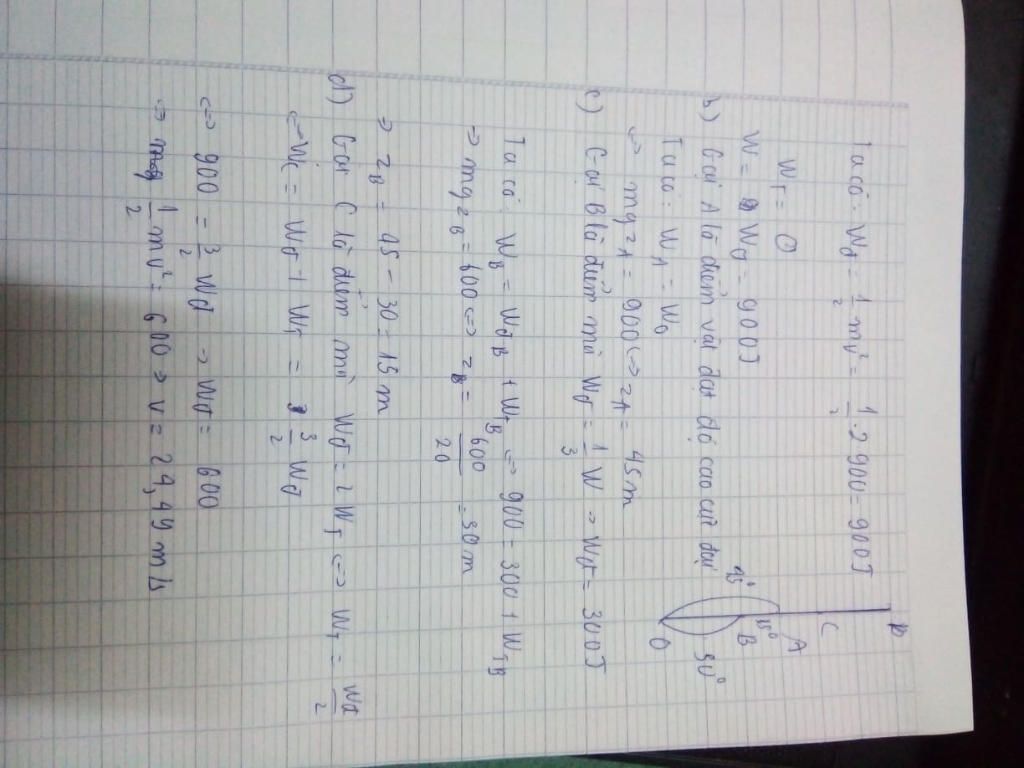 Ta có: Wđ = 1/2 mv² = 1/2 . 2 900 = 900J
WT = 0
W = Wđ = 900J
b) Gọi A là điểm vật đạt độ cao cực đại
Ta có: WA = W0
⇔ mgzA = 900 ⇔ zA = 45m
c) Gọi B là điểm mà Wđ = 1/3 W → Wđ = 300J
Ta có: WB = WđB + WtB ⇔ 900 = 300 + WTB
⇒ mgzB = 600 ⇔ zB = 600/20 = 30m
⇒ zB = 45 - 30 = 15m
d) Gọi C là điểm mà Wđ = 2WT ⇔ WT = Wđ/2
⇔ WC = Wđ + WT = 3/2 Wđ
⇔ 900 = 3/2 Wđ → Wđ = 600
⇒ 1/2 mv² = 600 ⇒ v = 24,49 m/s
C
A
B
O